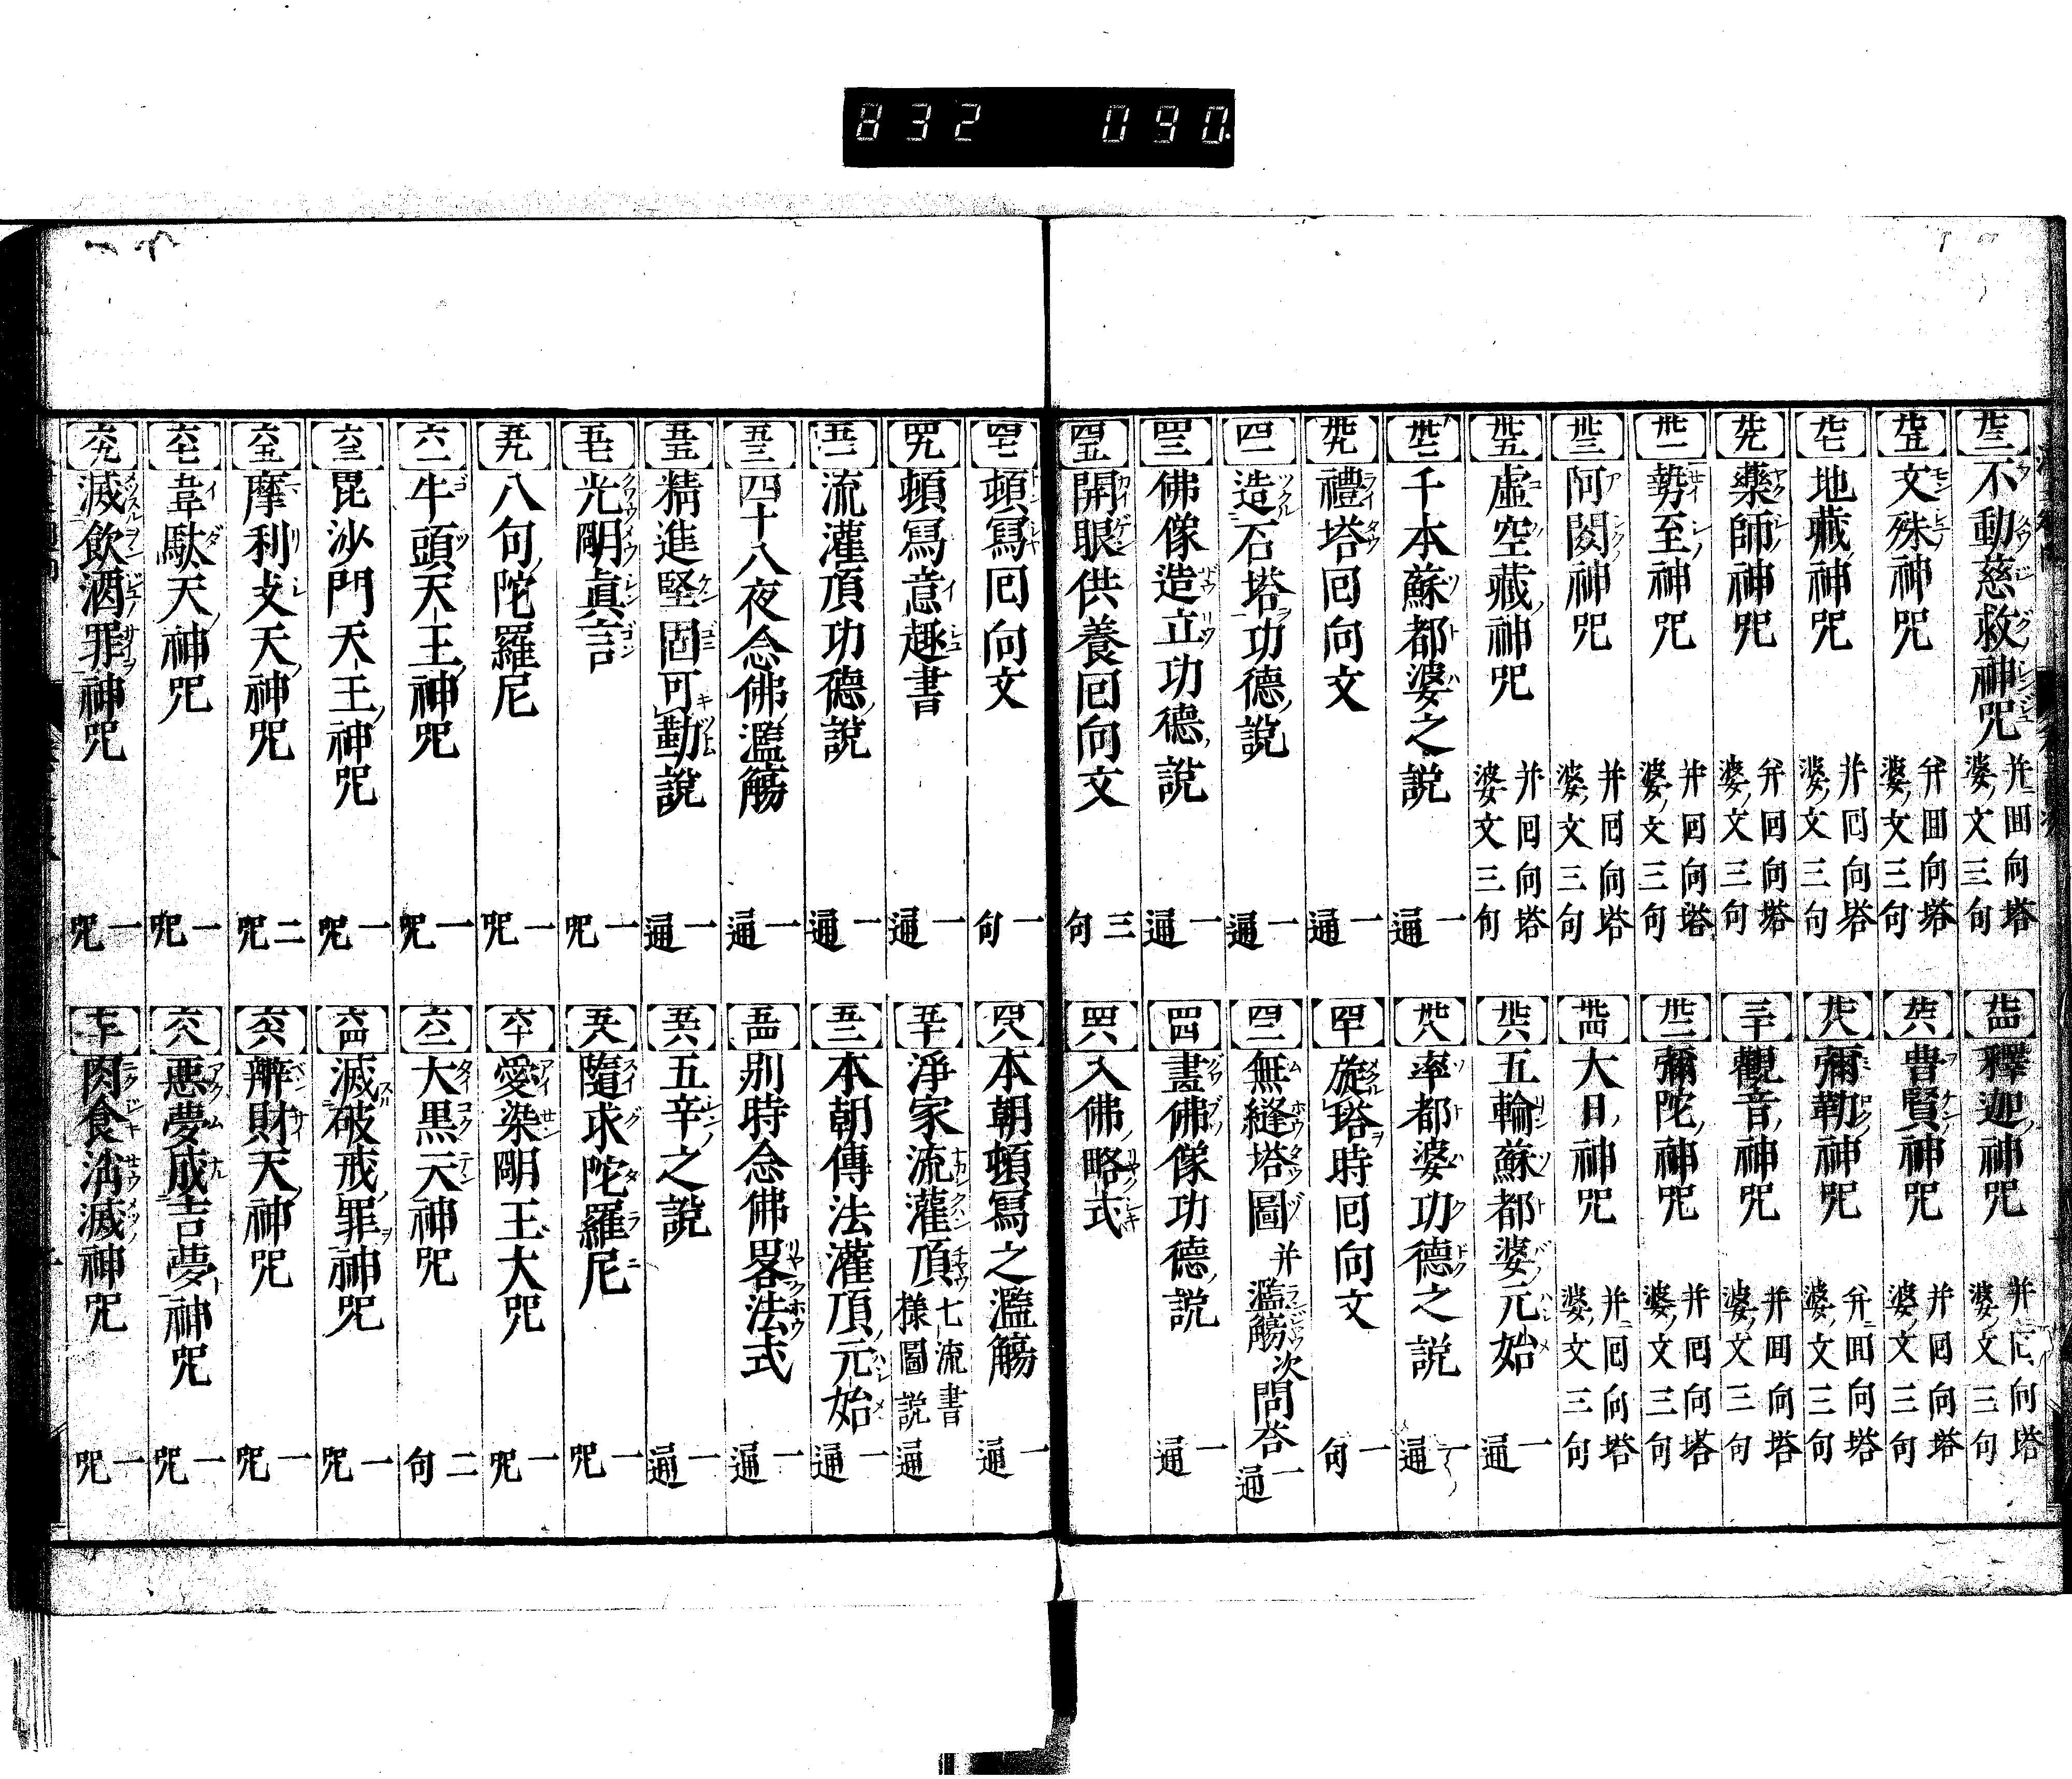 832 090
廿三 不動慈救神咒 并回向塔婆文三句
廿四 釋迦神咒 并回向塔婆文三句
廿五 文殊神咒 并回向塔婆文三句
廿六 普賢神咒 并回向塔婆文三句
廿七 地藏神咒 并回向塔婆文三句
廿八 彌勒神咒 并回向塔婆文三句
廿九 藥師神咒 并回向塔婆文三句
三十 觀音神咒 并回向塔婆文三句
卅一 勢至神咒 并回向塔婆文三句
卅二 彌陀神咒 并回向塔婆文三句
卅三 阿閦神咒 并回向塔婆文三句
卅四 大日神咒 并回向塔婆文三句
卅五 虛空藏神咒 并回向塔婆文三句
卅六 五輪蘇都婆元始 一通
卅七 千本蘇都婆之說 一通
卅八 率都婆功德之說 一通
卅九 禮塔回向文 一通
四十 旋塔時回向文 一句
四一 造石塔功德說 一通
四二 無縫塔圖 并濫觴次問答 一通
四三 佛像造立功德說 一通
四四 畫佛像功德說 一通
四五 開眼供養回向文 三句
四六 入佛略式
四七 頓寫回向文 一句
四八 本朝頓寫之濫觴 一通
四九 頓寫意趣書 一通
五十 淨家流灌頂 七流書樣圖說 一通
五一 流灌頂功德說 一通
五二 本朝傳法灌頂元始 一通
五三 四十八夜念佛濫觴 一通
五四 別時念佛畧法式 一通
五五 精進堅固可勤說 一通
五六 五辛之說 一通
五七 光明眞言 一咒
五八 隨求陀羅尼 一咒
五九 八句陀羅尼 一咒
六十 愛染明王大咒 一咒
六一 牛頭天王神咒 一咒
六二 大黑天神咒 二句
六三 毘沙門天王神咒 一咒
六四 滅破戒罪神咒 一咒
六五 摩利支天神咒 二咒
六六 辨財天神咒 一咒
六七 韋馱天神咒 一咒
六八 惡夢成吉夢神咒 一咒
六九 滅飲酒罪神咒 一咒
七十 肉食消滅神咒 一咒